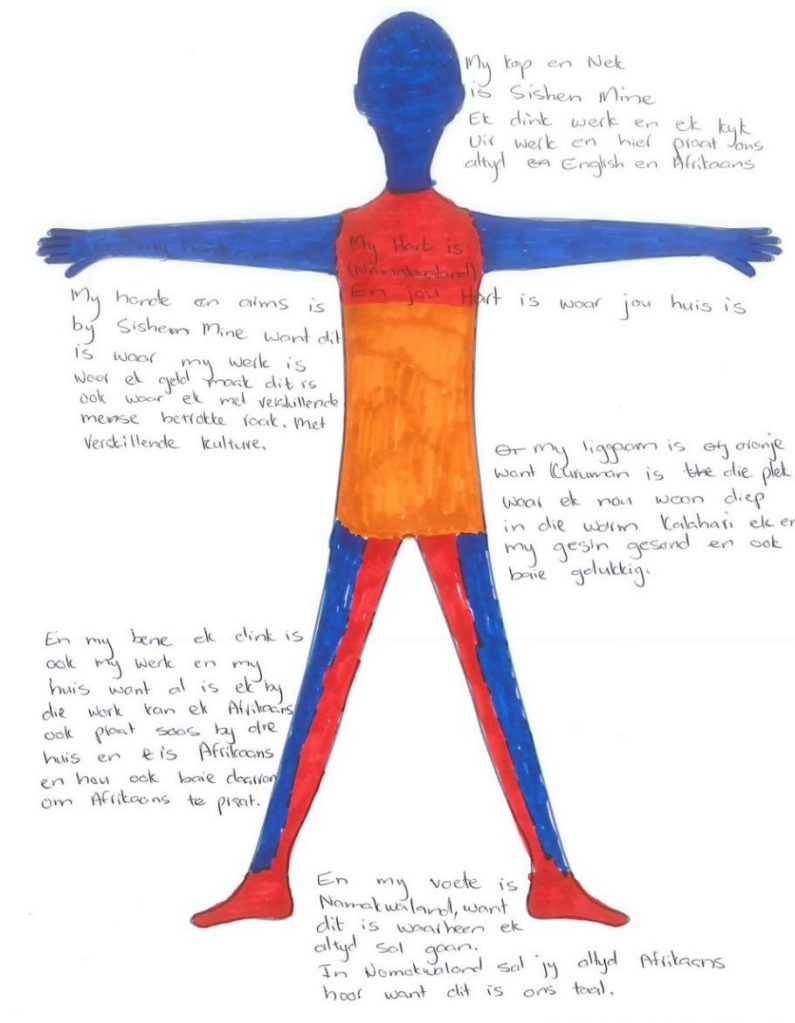 My kop en Nek
is Sishen Mine
Ek dink werk en ek kyk
Uir werk en hier praat ons
altyd en English en Afrikaans
En my hande
My Hart is
(Namakwaland)
En jou Hart is waar jou huis is
My hande en arms is
by Sishen Mine want dit
is waar my werk is
waar ek geld maak dit is
ook waar ek met verskillende
mense betrokke raak. Met
verskillende kulture.
my liggaam is oranje
want Kuruman is die plek
waar ek nou woon diep
in die warm Kalahari ek en
my gesin gesond en ook
baie gelukkig.
En my bene ek dink is
ook my werk en my
huis want al is ek by
die werk kan ek Afrikaans
ook praat soos by die
huis en is Afrikaans
en hou ook baie daarvan
om Afrikaans te praat.
En my voete is
Namakwaland, want
dit is waarheen ek
altyd sal gaan.
In Namakwaland sal jy altyd Afrikaans
hoor want dit is ons taal.